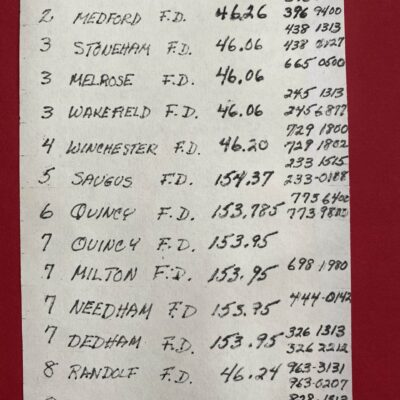 2 MEDFORD F.D. 46.26 396 9400
438 1313
3 STONEHAM F.D. 46.06 438 0127
665 0500
3 MELROSE F.D. 46.06
245 1313
3 WAKEFIELD F.D. 46.06 245 6877
729 1800
4 WINCHESTER F.D. 46.20 729 1802
233 1515
5 SAUGUS F.D. 154.37 233-0188
773 6400
6 QUINCY F.D. 153.785 773 9800
7 QUINCY F.D. 153.95
7 MILTON F.D. 153.95 698 1980
7 NEEDHAM F.D 153.95 444-0142
7 DEDHAM F.D. 153.95 326 1313
326 2212
8 RANDOLF F.D. 46.24 963-3131
963-0207
828 1313